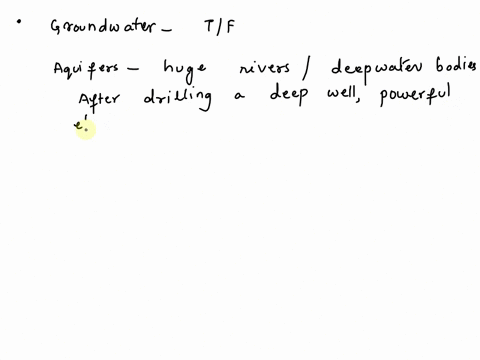 • Groundwater - T/F
Aquifers - huge rivers / deepwater bodies
After drilling a deep well, powerful